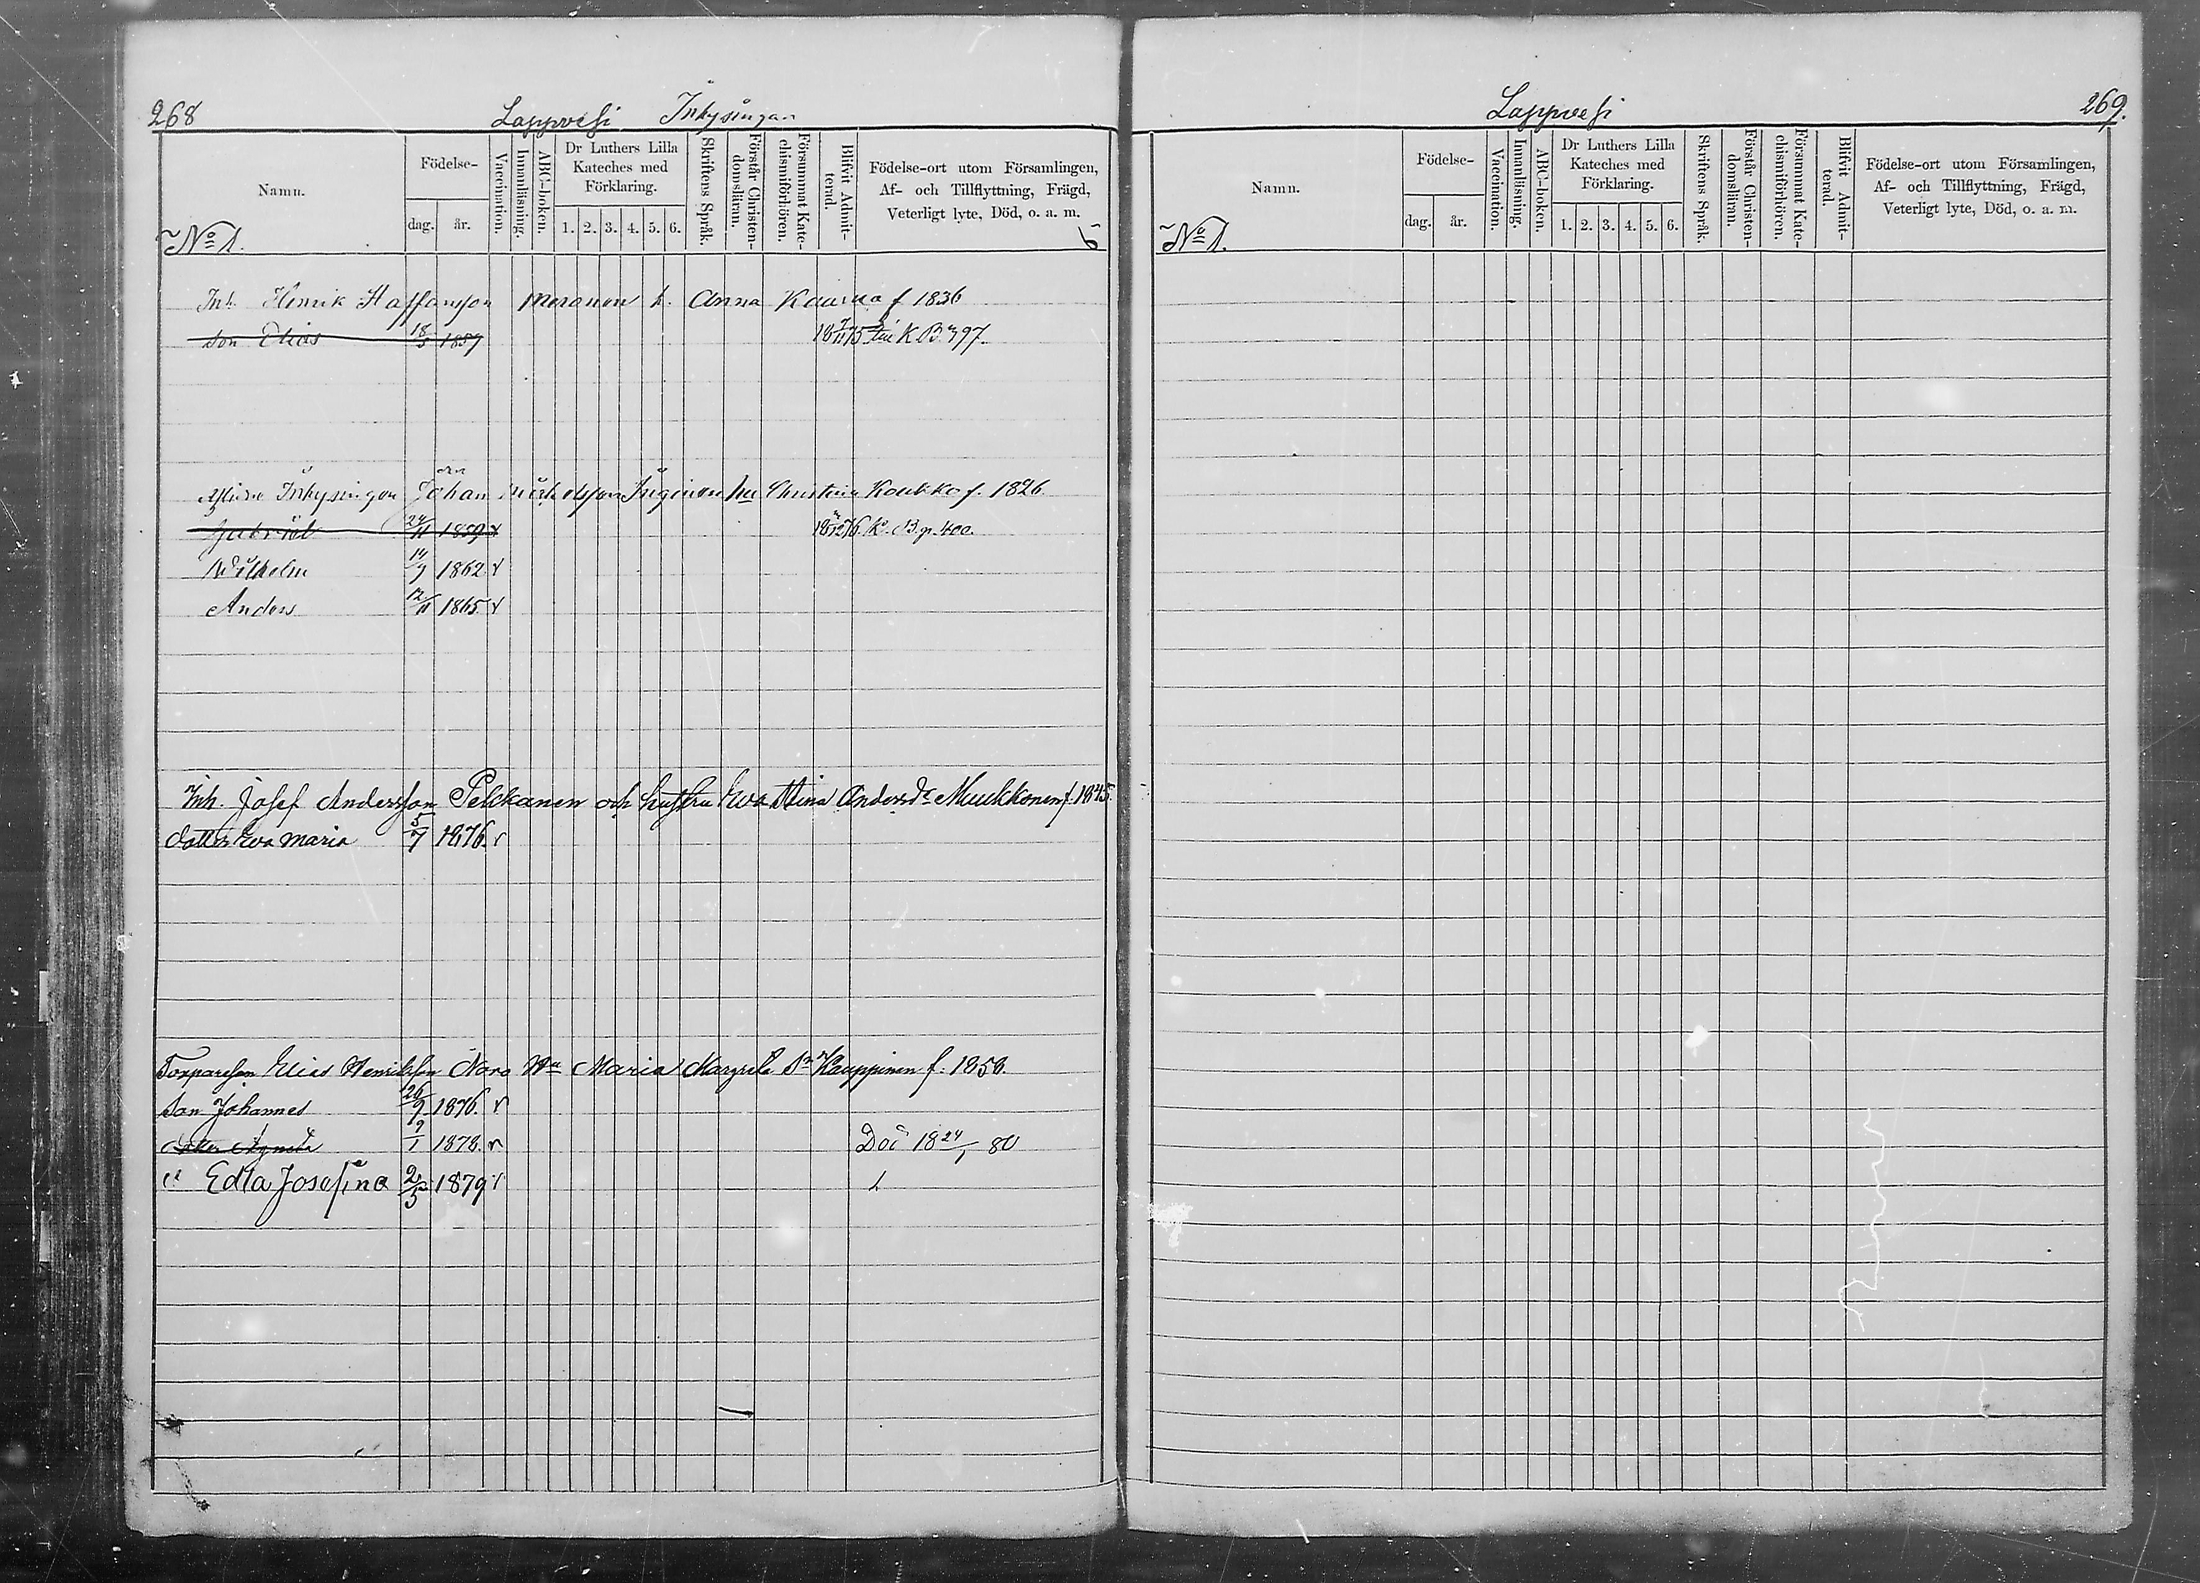 268 Lappvesi Inkysingan
Namn. Födelse- dag. år. Vaccination. Innanläsning. ABC-boken. Dr Luthers Lilla Kateches med Förklaring. 1. 2. 3. 4. 5. 6. Skriftens Språk. Förstår Christendomsläran. Försummat Katechismiförhören. Blifvit Admitterad. Födelse-ort utom Församlingen, Af- och Tillflyttning, Frägd, Veterligt lyte, Död, o. a. m.
No 1.
Inh. Henrik Staffansson h. Anna Kaurna f 1836
Son Elias 18/5 1859 K B 397.
Inkysingen Johan hu Christina Koukko f. 1826
Gabriel 24/11 1859 K. B. p. 400.
Wilhelm 14/9 1862 v
Anders 12/11 1865 v
Inh. Josef Andersson Pekkanen och hustru Eva Stina Andersdr Muukkonen f. 1845.
dotter Eva Maria 5/7 1876. v
Torpareson Elias Henriksson Noro Hu Maria Margreta Dr Kauppinen f. 1858.
Son Johannes 26/9 1876. v
dotter Agneta 9/1 1878. v Död 18 24/1 80
" Edla Josefina 2/5 1879 v
Lappvesi 269.
Namn. Födelse- dag. år. Vaccination. Innanläsning. ABC-boken. Dr Luthers Lilla Kateches med Förklaring. 1. 2. 3. 4. 5. 6. Skriftens Språk. Förstår Christendomsläran. Försummat Katechismiförhören. Blifvit Admitterad. Födelse-ort utom Församlingen, Af- och Tillflyttning, Frägd, Veterligt lyte, Död, o. a. m.
No 1.